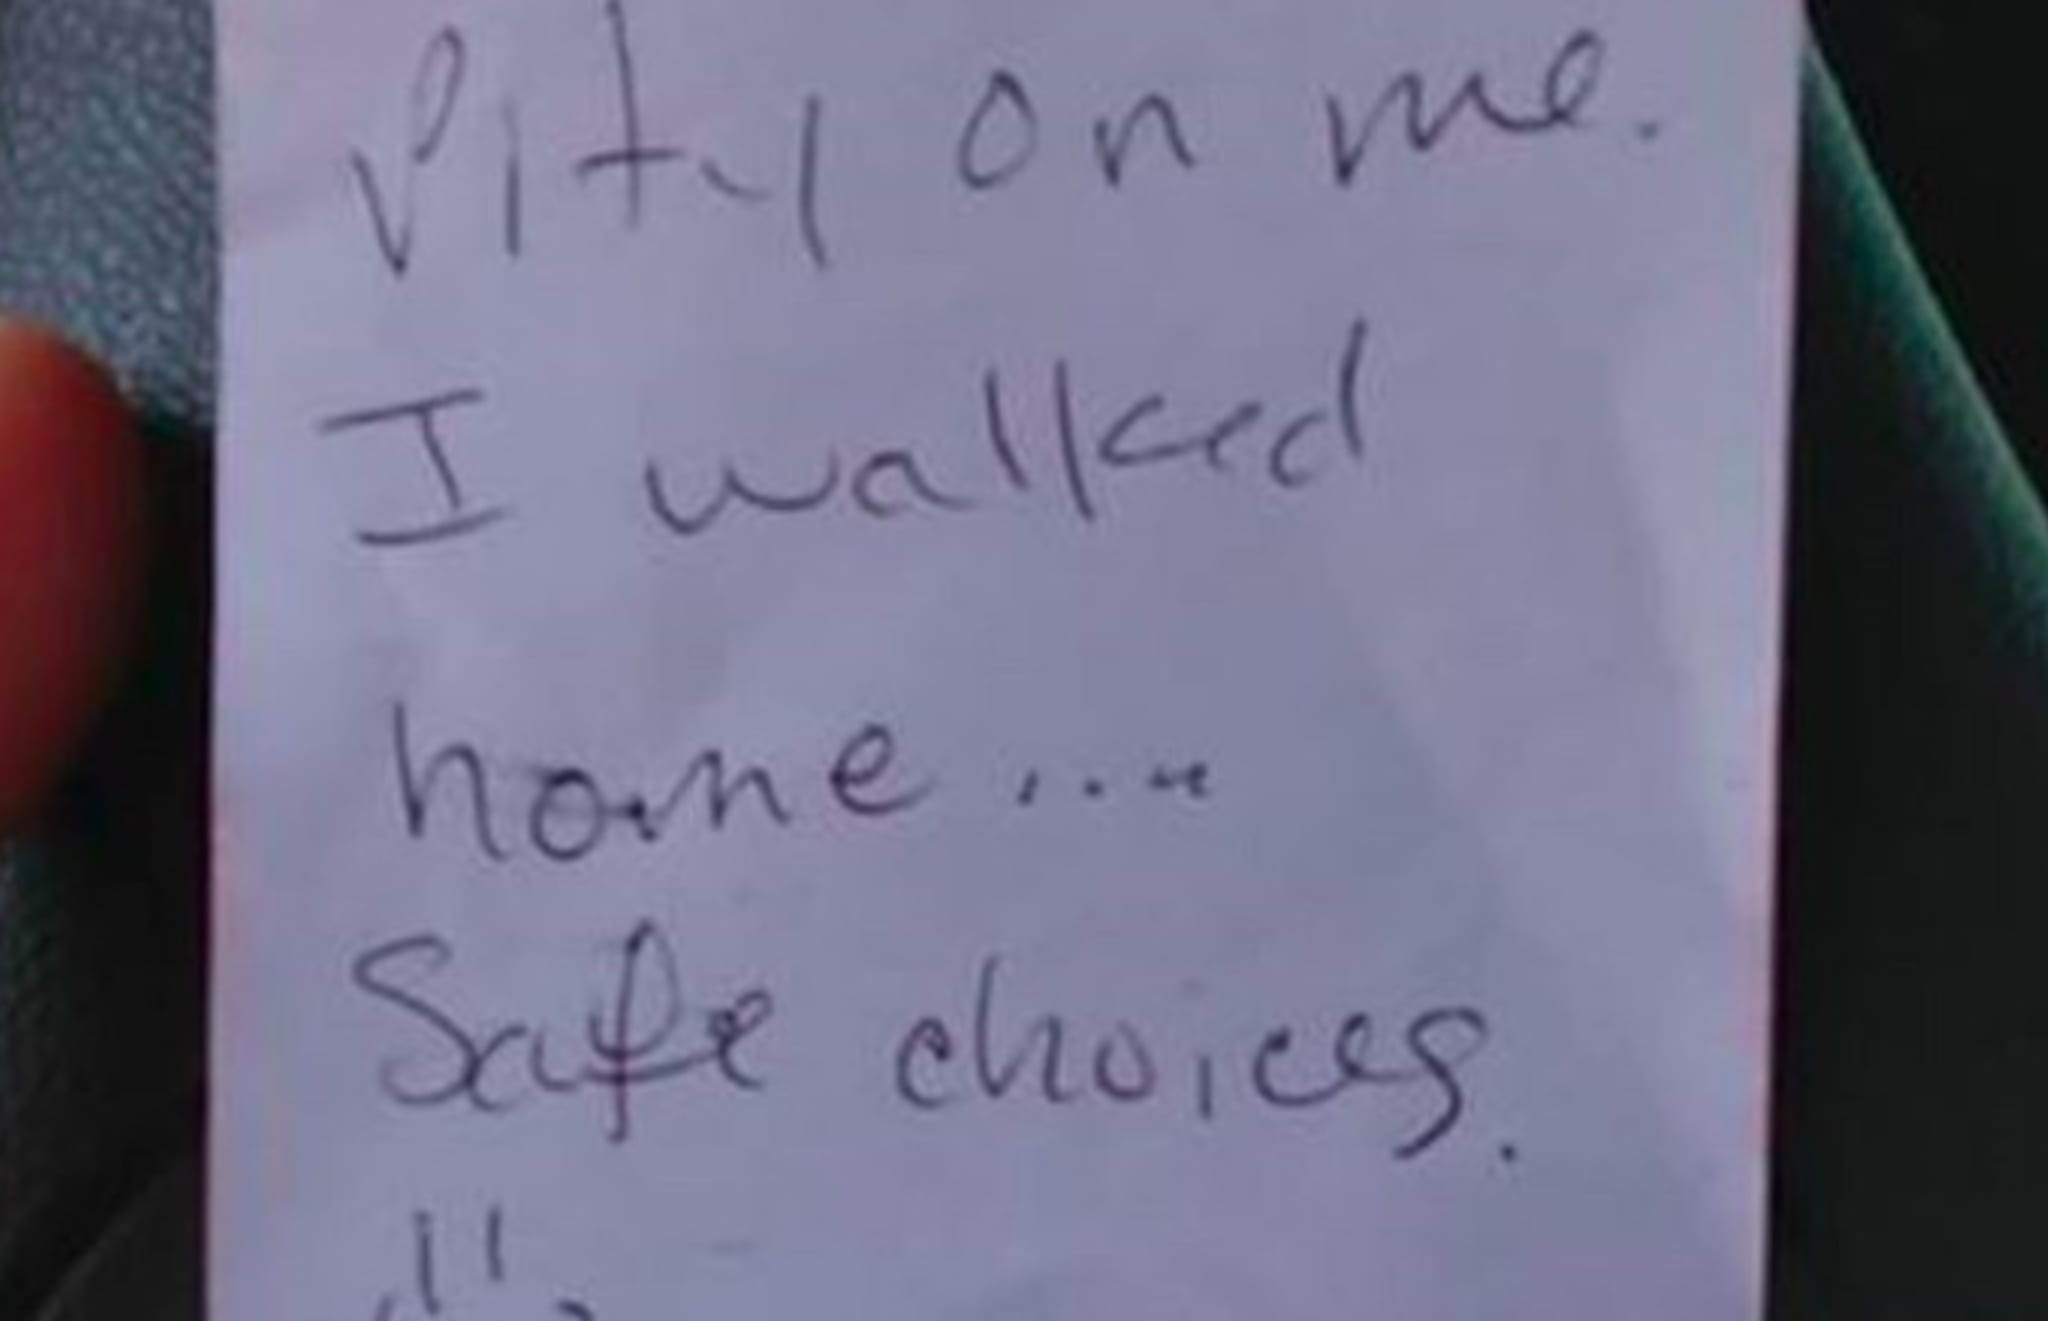 Pity on me.
I walked
home....
Safe choices.